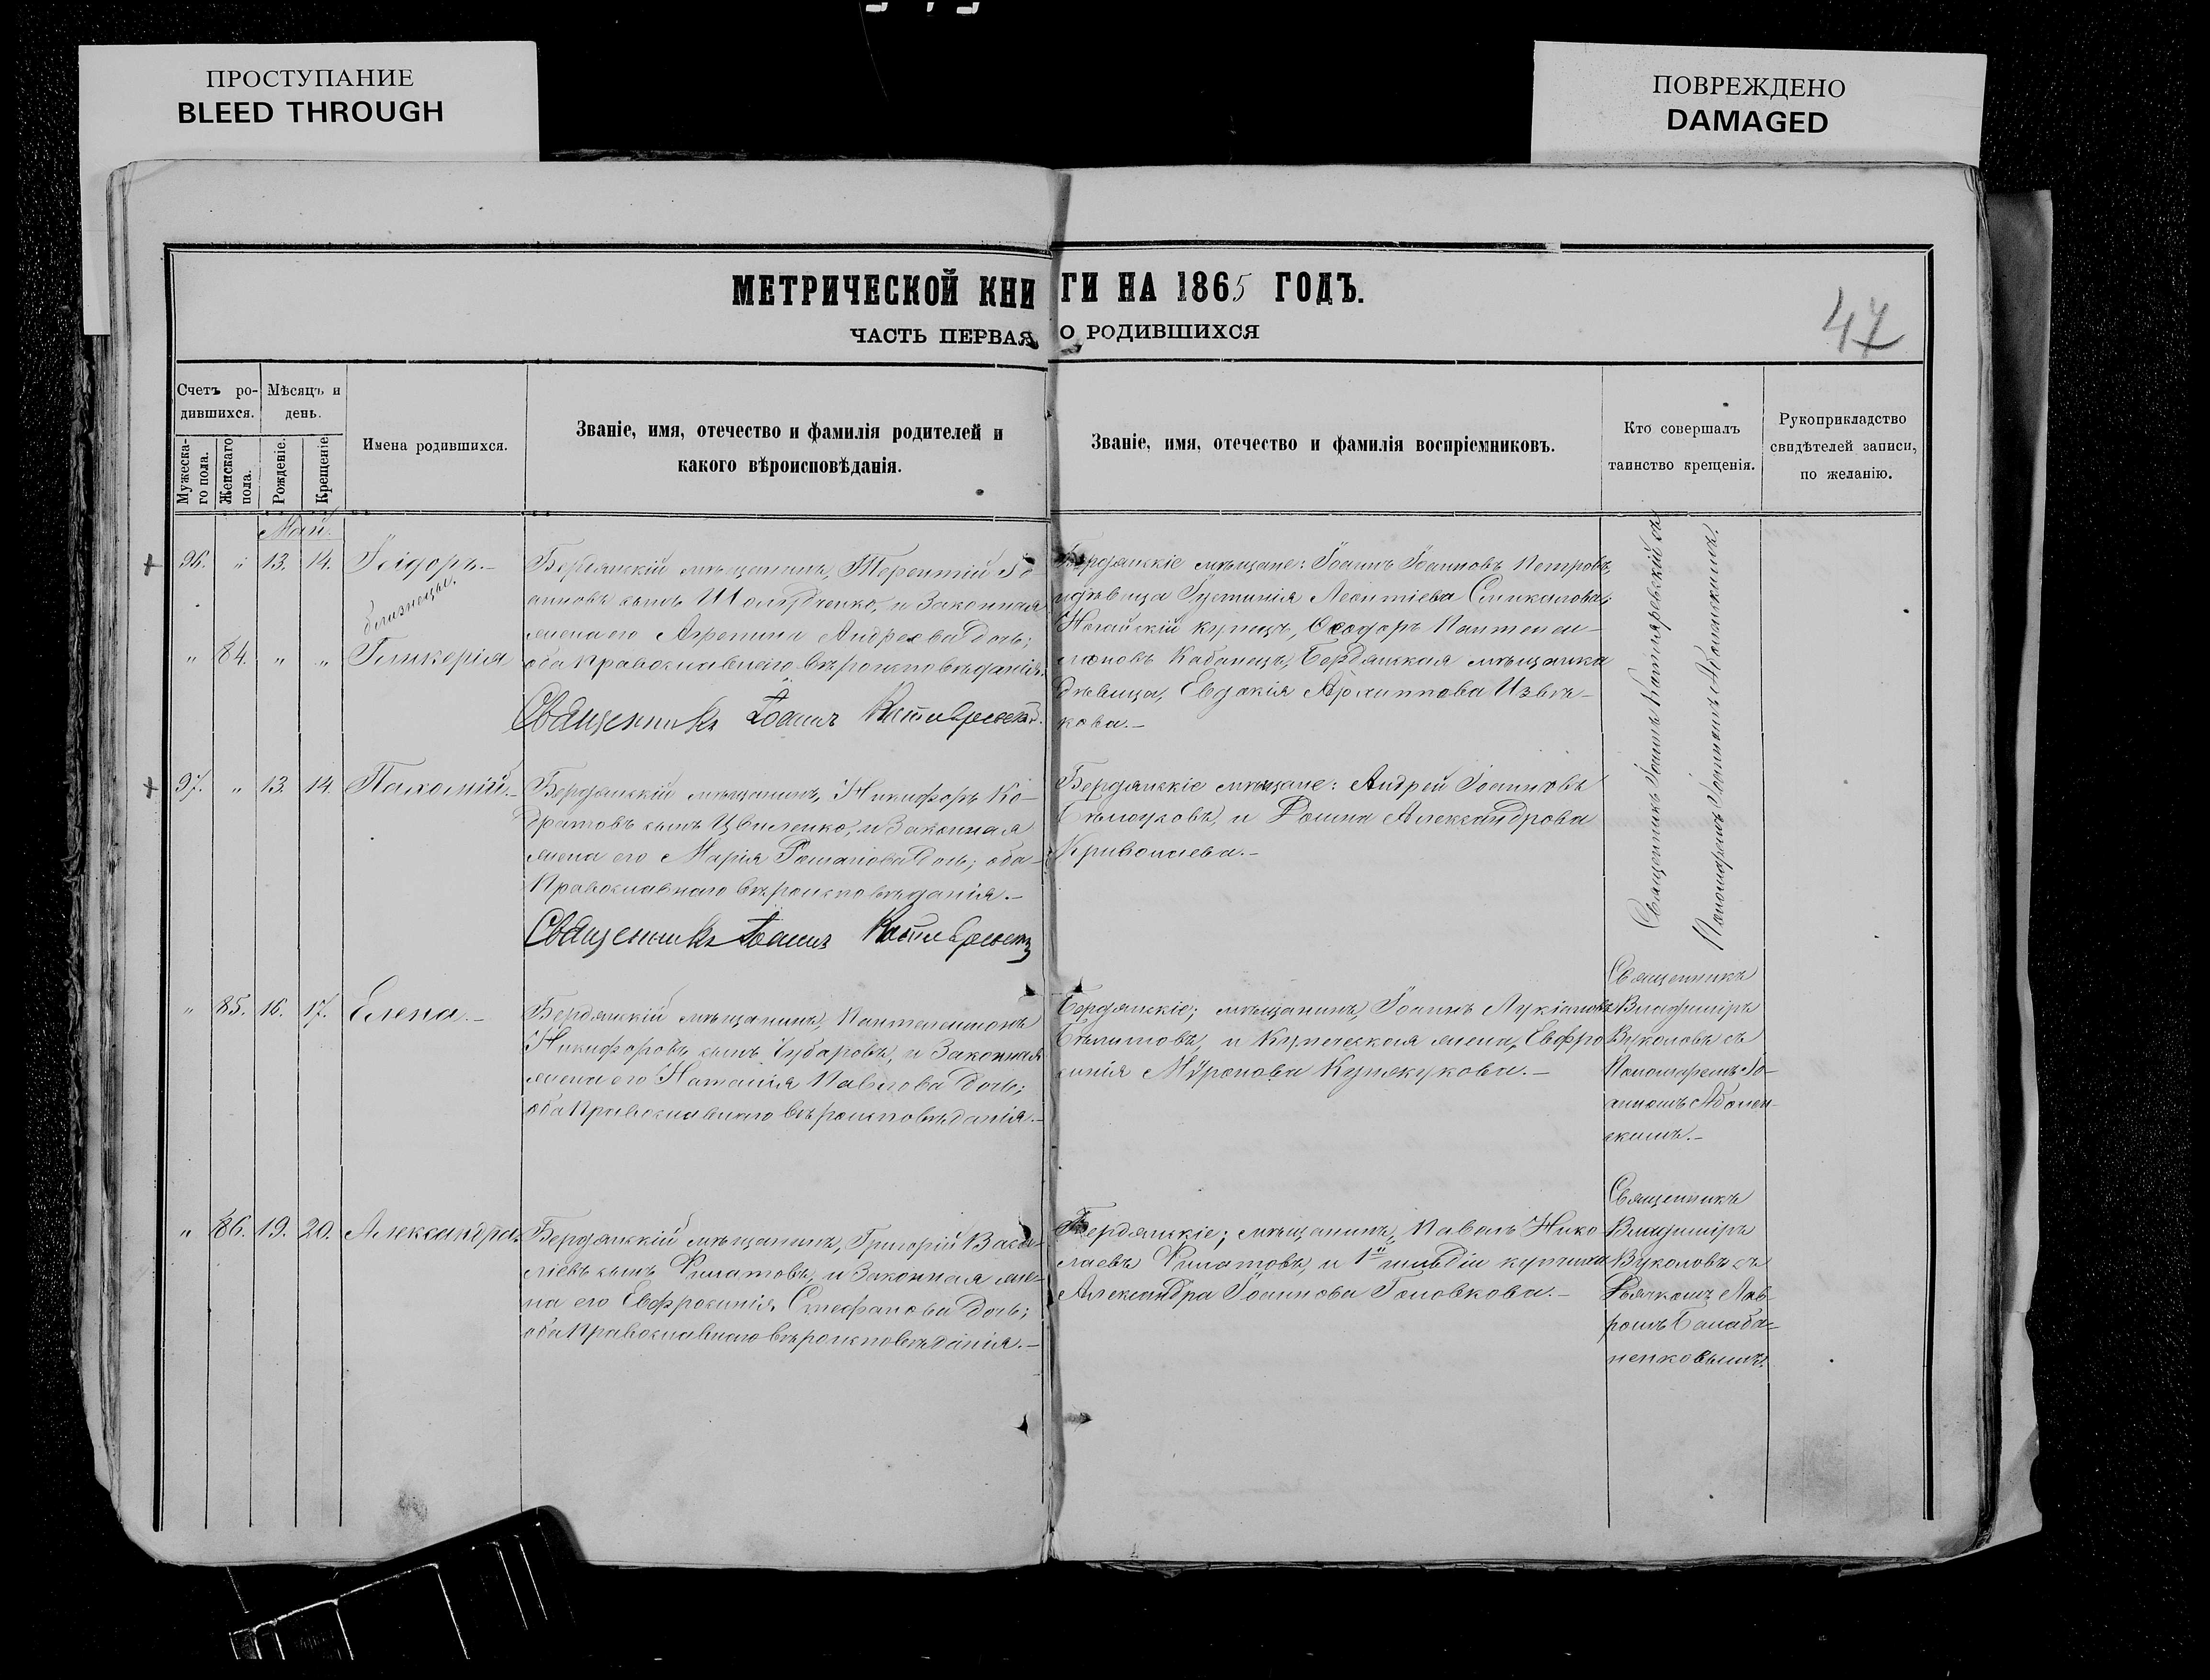 ПРОСТУПАНИЕ
BLEED THROUGH
ПОВРЕЖДЕНО
DAMAGED
МЕТРИЧЕСКОЙ КНИГИ НА 1865 ГОДЪ.
ЧАСТЬ ПЕРВАЯ О РОДИВШИХСЯ
47
Счетъ ро-
дившихся.
Мужеска-
го пола.
Женскаго
пола.
Мѣсяцъ и
день.
Рожденіе.
Крещеніе.
Имена родившихся.
Званіе, имя, отечество и фамилія родителей и
какого вѣроисповѣданія.
Званіе, имя, отечество и фамилія воспріемниковъ.
Кто совершалъ
таинство крещенія.
Рукоприкладство
свидѣтелей записи,
по желанію.
Май.
96. " 13. 14. Ісідоръ.-
близнецы.
" 84. " " Гликерія
Бердянскій мѣщанинъ, Терентій Іо-
анновъ сынъ и Законная
жена его Агрепина Андреева дочь;
оба Православнаго вѣроисповѣданія.
Священникъ Іоаннъ
Бердянскіе мѣщане: Іоаннъ Іоанновъ Петровъ,
и дѣвица Іустинія Леонтіева
Ногайскій купецъ, Ѳеодоръ Пантелеи-
моновъ Кабанецъ, Бердянская мѣщанка
дѣвица, Евдокія Архиппова Извѣ-
кова.-
Священникъ Іоаннъ съ
Пономаремъ Іоанномъ Аболенскимъ.
97. " 13. 14. Пахомій.-
Бердянскій мѣщанинъ, Никифоръ Ко-
дратовъ сынъ Цвиленко, и Законная
жена его Марія Романова дочь; оба
Православнаго вѣроисповѣданія.-
Священникъ Іоаннъ
Бердянскіе мѣщане: Андрей Іоанновъ
и Домна Александрова
" 85. 16. 17. Елена.-
Бердянскій мѣщанинъ, Пантелеимонъ
Никифоровъ сынъ Чубаровъ, и Законная
жена его Наталія Павлова дочь;
оба Православнаго вѣроисповѣданія.-
Бердянскіе; мѣщанинъ, Іоаннъ Лукіановъ
и Купеческая жена, Евфро
синія Мѵронова
Священникъ
Владиміръ
Вуколовъ съ
Пономаремъ Іо-
анномъ Аболен-
скимъ.-
" 86. 19. 20. Александра.
Бердянскій мѣщанинъ, Григорій Васи-
ліевъ сынъ Филатовъ, и Законная же-
на его Евфросинія Стефанова дочь;
оба Православнаго вѣроисповѣданія.-
Бердянскіе; мѣщанинъ, Павелъ Нико
лаевъ Филатовъ, и 1й гильдіи купчиха
Александра Іоаннова Головкова.-
Священникъ
Владиміръ
Вуколовъ съ
Дьячкомъ Лав-
ромъ Балаба-
ненковымъ.